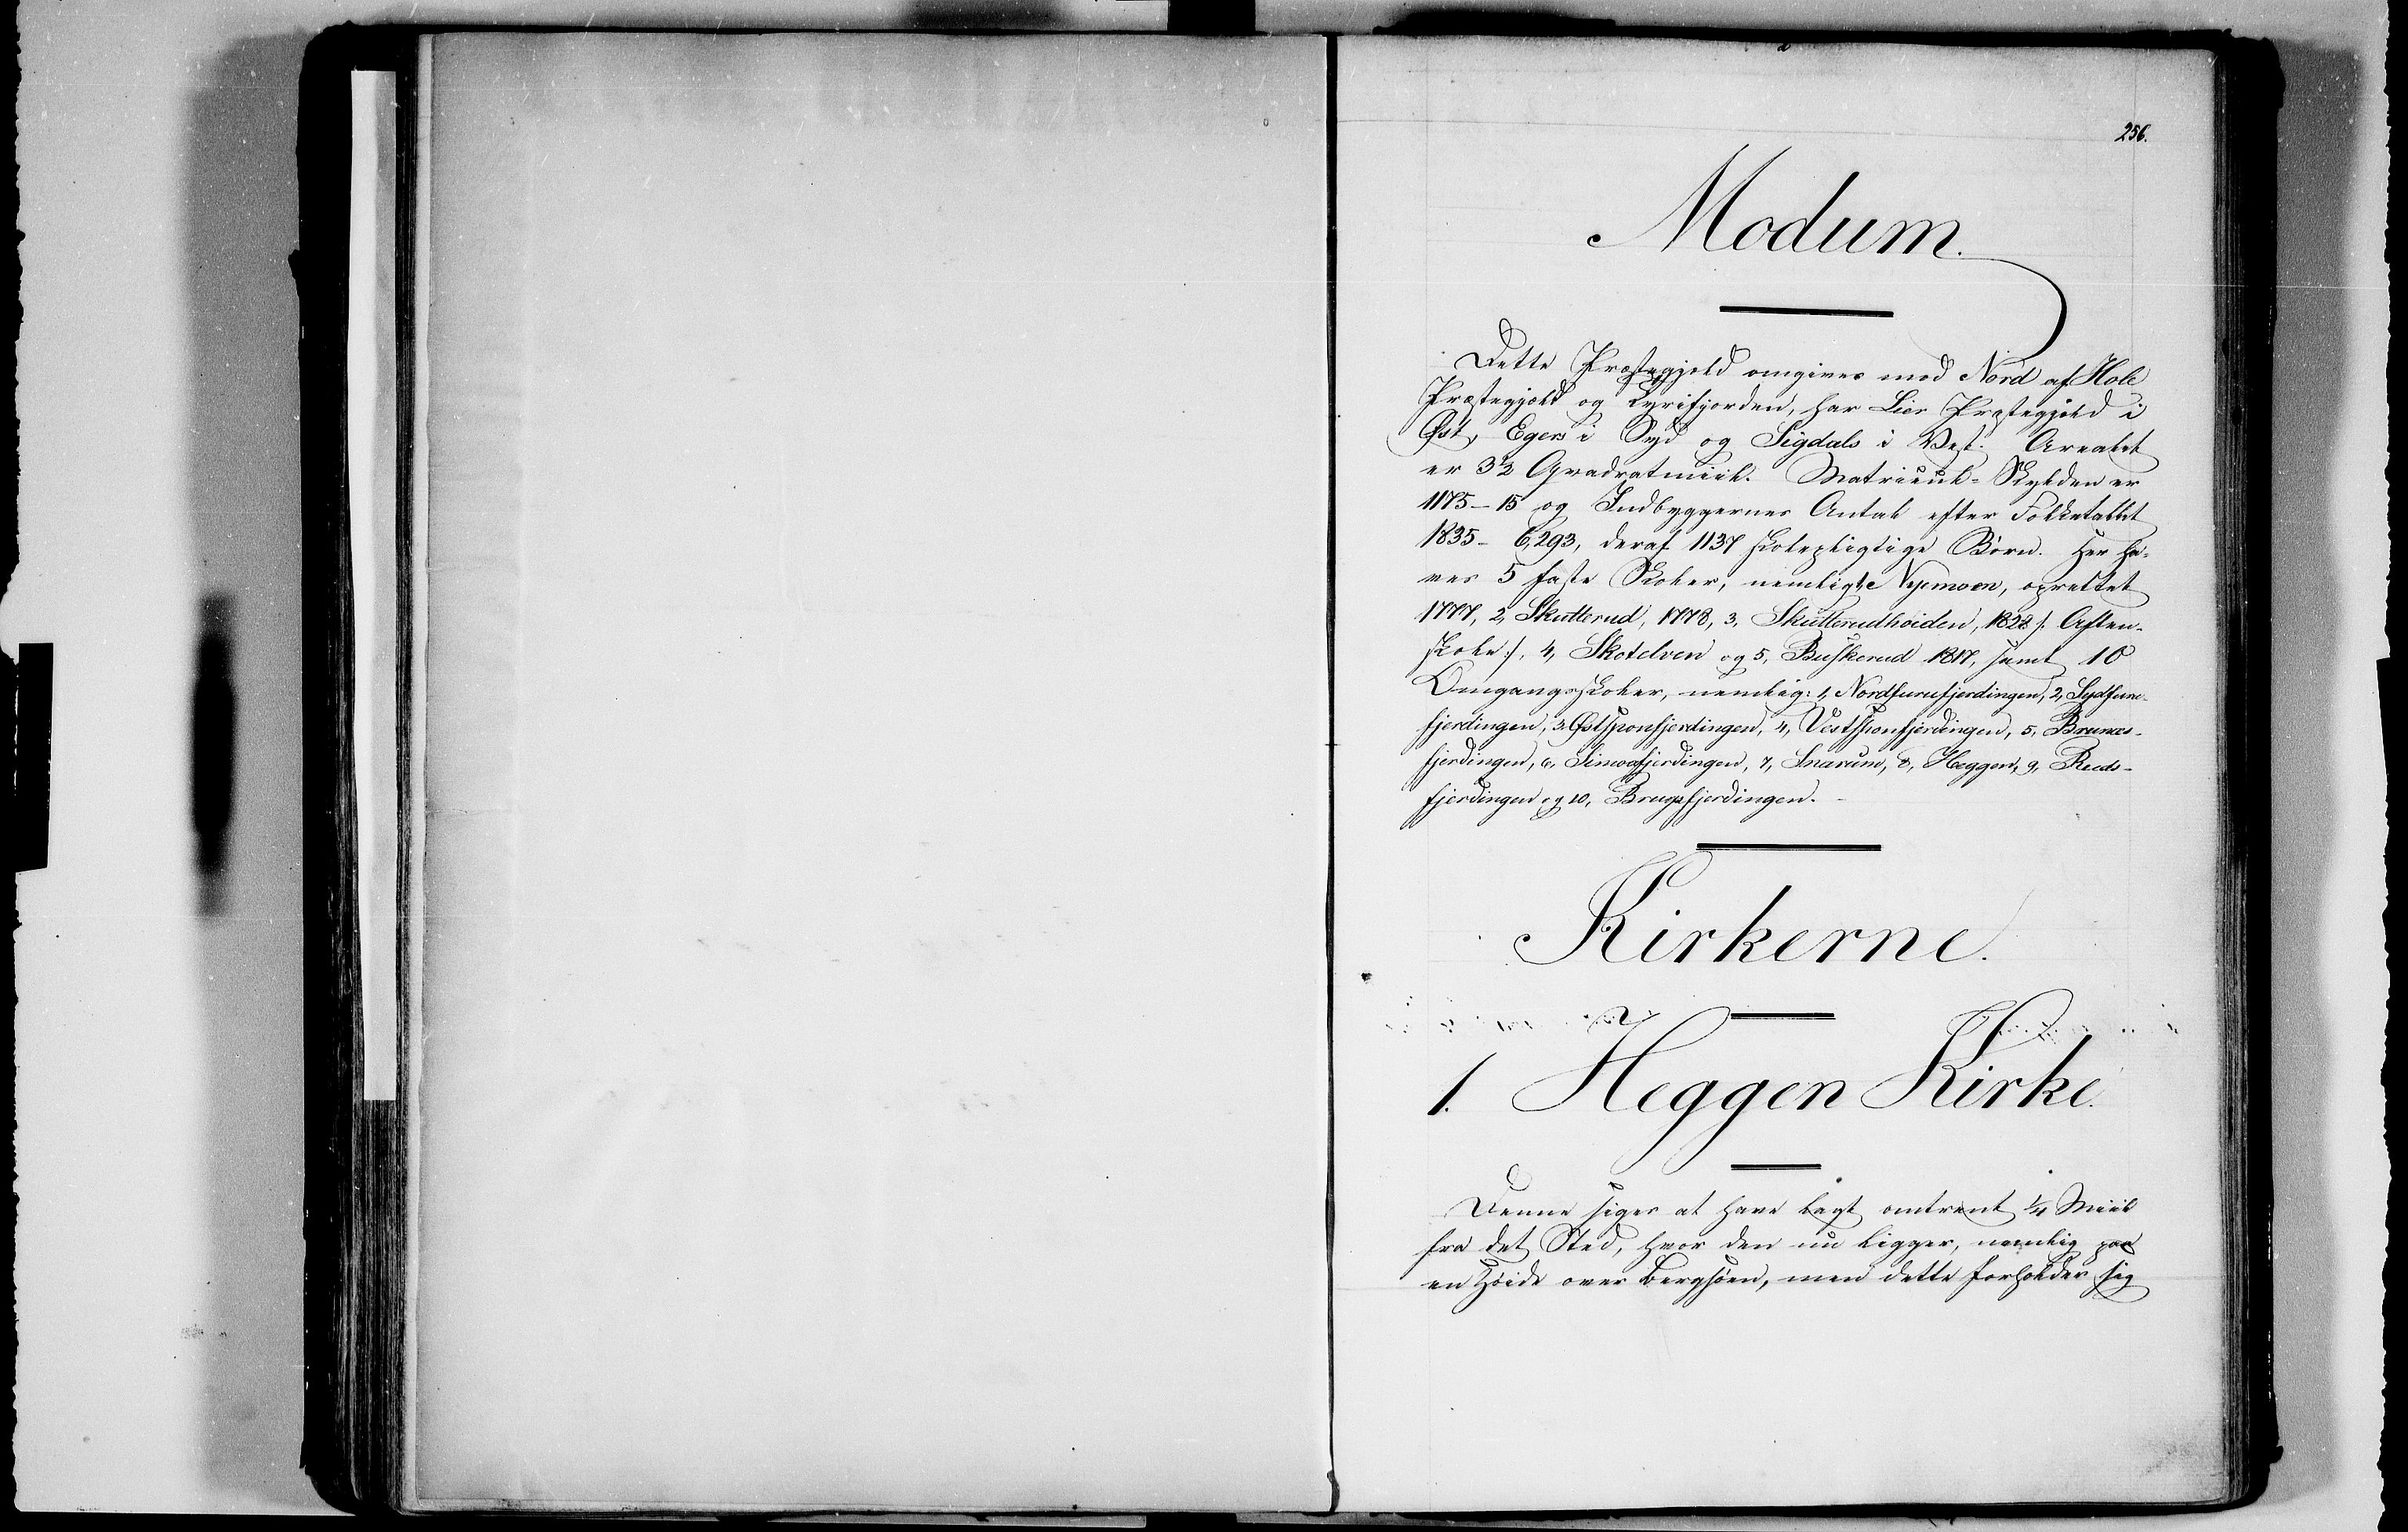 256.
Modum.
Dette Præstegjeld omgives mod Nord af Hole
Præstegjeld og Tyrifjorden, har Lier Præstegjeld i
Øst, Egers i Syd og Sigdals i Vest. Arealet
er 3½ Qvadratmiil. Matricul-Skylden er
1175-15 og Indbyggernes Antal efter Folketallet
1835 - 6,293, deraf 1137 skolepligtige Børn. Her ha-
ves 5 faste Skoler, nemlig 1, Vyemoen, oprettet
1777, 2, Skutterud, 1778, 3, Skutterudhøiden, 1828 /: Aften-
skole :/, 4, Skotelven og 5, Buskerud 1817, samt 10
Omgangsskoler, nemlig: 1, Nordfurufjerdingen, 2, Sydfuru-
fjerdingen, 3, Østsponfjerdingen, 4, Vestsponfjerdingen, 5, Brunæs-
fjerdingen, 6, Simoafjerdingen, 7, Snarum, 8, Heggen, 9, Ruds-
fjerdingen og 10, Brugsfjerdingen. -
Kirkerne.
1. Heggen Kirke.
Denne siges at have lagt omtrent ¼ Miil
fra det Sted, hvor den nu ligger, nemlig paa
en Høide over Bergsøen, men dette forholder sig